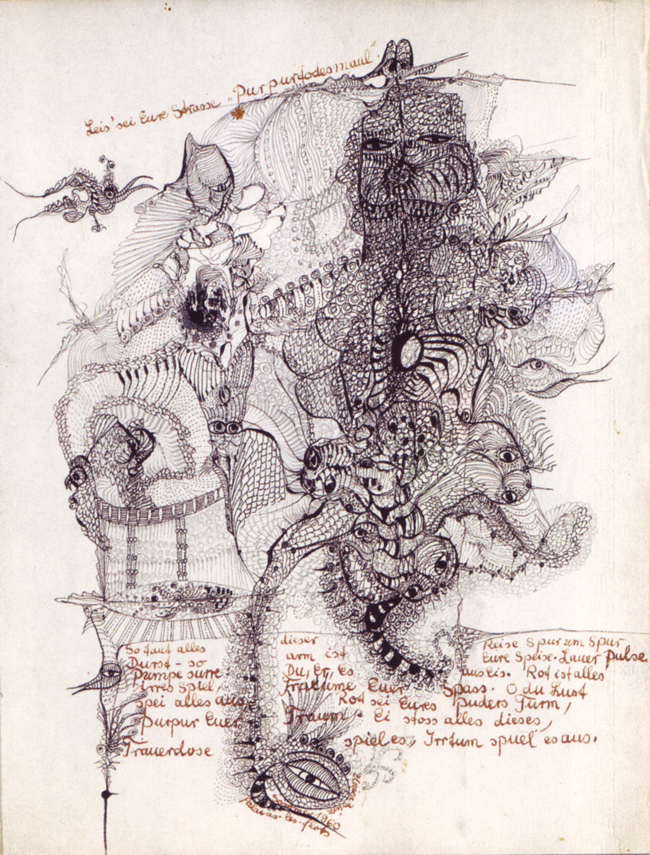 Leis' sei Eure Strasse „Purpurtodesmaul“
So lauf alles
Durst – so
Pumpe surre
irres Spiel,
spei alles aus,
Purpur Euer
Trauerdose
dieser
arm ist
Du, Er, es
Traeume Euer Spass. O du Lust
Rot sei Eures Puders Turm,
Traum. Ei stoss alles dieses,
spiel es, Irrtum spuel' es aus.
Reise Spur um Spur
Eure Speise. Lauer Pulse
Rot ist alles
1960
Palavas-les-flots